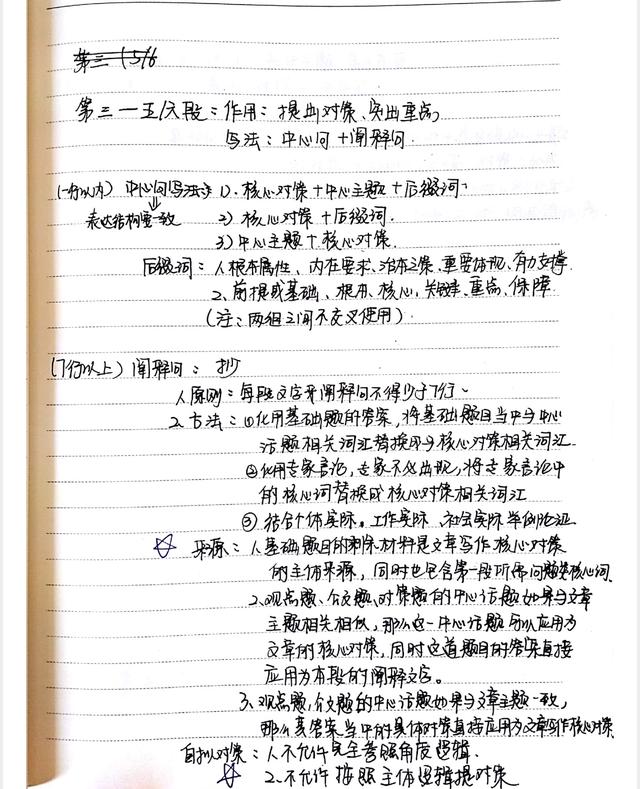 第三一五/六
第三一五/六段：作用：提出对策、突出重点
写法：中心句+阐释句
(一行以内) 中心句写法：1). 核心对策+中心主题+后缀词
表达结构要一致 2) 核心对策+后缀词.
3) 中心主题+核心对策.
后缀词：1.根本属性、内在要求、治本之策、重要体现、有力支撑
2、前提或基础、根本、核心、关键、重点、保障
(注：两组之间不交叉使用)
(7行以上) 阐释句：抄
1.原则：每段文字里阐释句不得少于7行。
2.方法：①化用基础题的答案，将基础题目当中与中心
话题相关词汇替换为与核心对策相关词汇
②化用专家言论，专家不必出现，将专家言论中
的核心词替换成核心对策相关词汇
③ 结合个体实际。工作实际、社会实际举例论证
☆ 来源：1.基础题目的剩余材料是文章写作核心对策
的主体来源，同时也包含第一段所需问题类核心词
2.观点题、公文题、对策题的中心话题如果与文章
主题相关相似，那么这一中心话题可以应用为
文章的核心对策，同时这道题目的答案直接
应用为本段的阐释文字。
3.观点题、公文题的中心话题如果与文章主题一致，
那么该答案当中的具体对策直接应用为文章写作核心对策
自拟对策：1.不允许完全参照角度逻辑.
☆ 2.不允许按照主体逻辑提对策